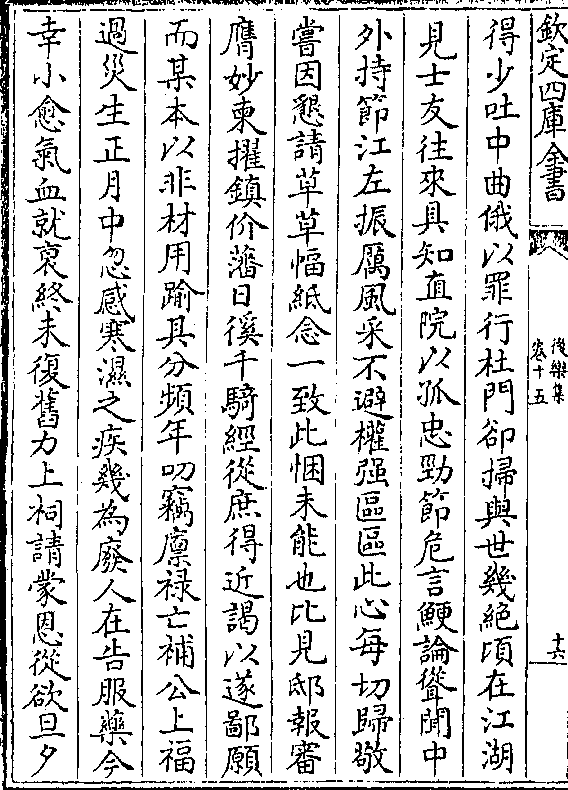 欽定四庫全書
後樂集
卷十五
十六
得少吐中曲俄以罪行杜門卻掃與世幾絶頃在江湖
見士友往來具知直院以孤忠勁節危言鯁論聳聞中
外持節江左振厲風采不避權强區區此心每切歸敬
嘗因懇請草草幅紙念一致此悃未能也比見邸報審
膺妙柬擢鎮价藩日徯千騎經從庶得近謁以遂鄙願
而某本以非材用踰其分頻年叨竊廪禄亡補公上福
過災生正月中忽感寒濕之疾幾為廢人在告服藥今
幸小愈氣血就衰終未復舊力上祠請蒙恩從欲旦夕